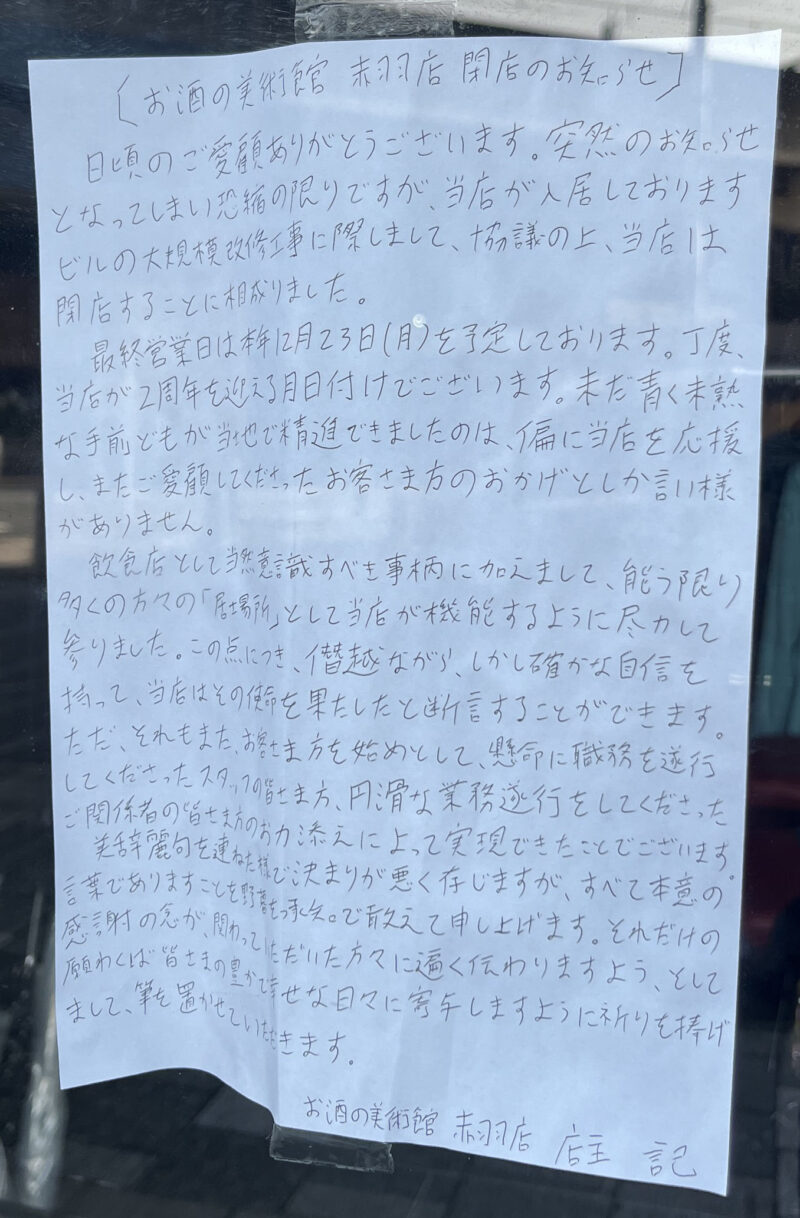 〔お酒の美術館 赤羽店 閉店のお知らせ〕
日頃のご愛顧ありがとうございます。突然のお知らせ
となってしまい恐縮の限りですが、当店が入居しております
ビルの大規模改修工事に際しまして、協議の上、当店は
閉店することに相成りました。
最終営業日は本年12月23日(月)を予定しております。丁度、
当店が2周年を迎える月日付けでございます。未だ青く未熟
な手前どもが当地で精進できましたのは、偏に当店を応援
し、またご愛顧してくださったお客さま方のおかげとしか言い様
がありません。
飲食店として当然意識すべき事柄に加えまして、能う限り
多くの方々の「居場所」として当店が機能するように尽力して
参りました。この点につき、僭越ながら、しかし確かな自信を
持って、当店はその使命を果たしたと断言することができます。
ただ、それもまた、お客さま方を始めとして、懸命に職務を遂行
してくださったスタッフの皆さま方、円滑な業務遂行をしてくださった
ご関係者の皆さま方のお力添えによって実現できたことでございます。
美辞麗句を連ねた様で決まりが悪く存じますが、すべて本意の
言葉でありますことを野暮を承知で敢えて申し上げます。それだけの
感謝の念が、関わっていただいた方々に遍く伝わりますよう、そして
願わくば皆さまの豊かで幸せな日々に寄与しますように祈りを捧げ
まして、筆を置かせていただきます。
お酒の美術館 赤羽店 店主 記